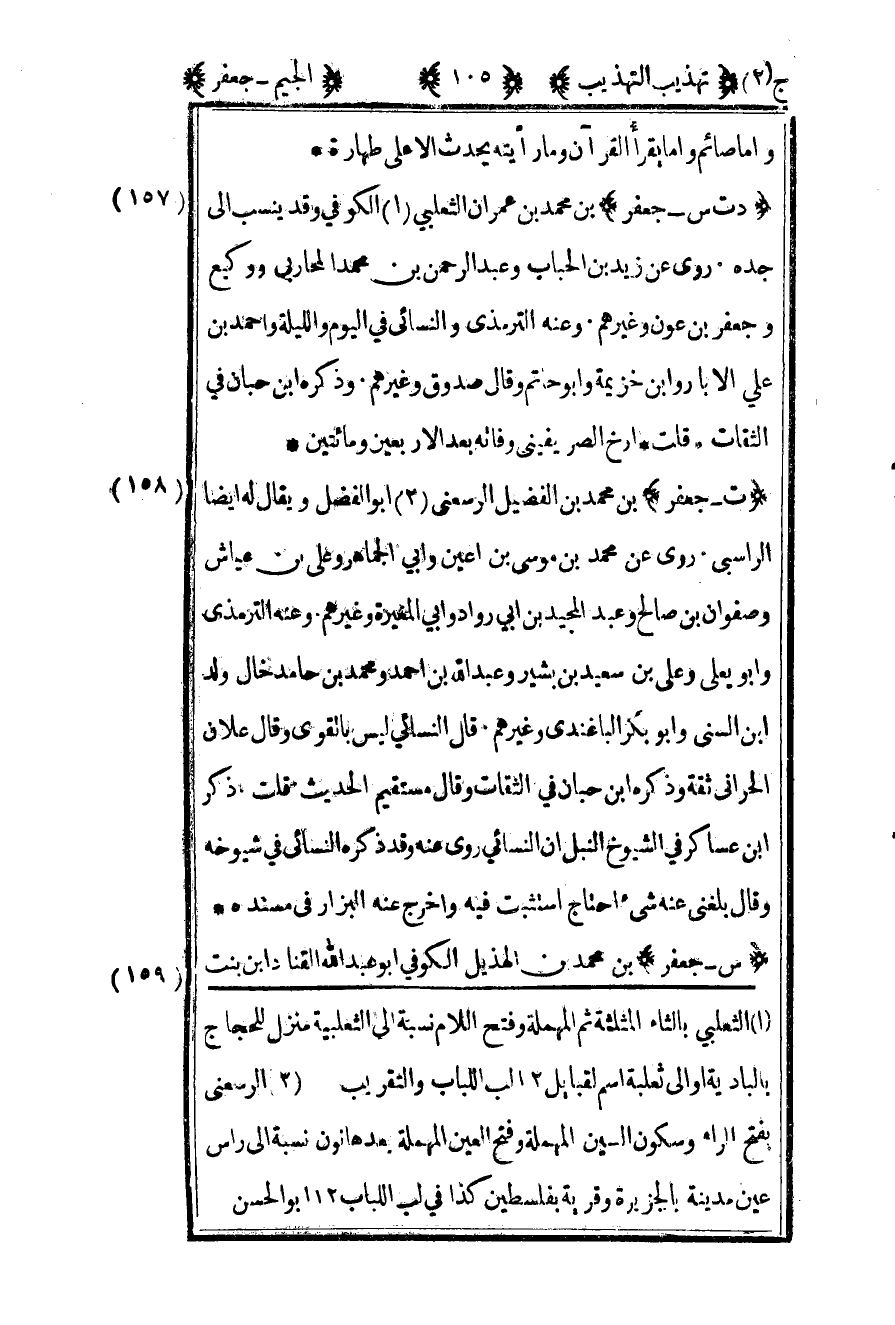 ج(٢) ﴿ تهذيب التهذيب ﴾ ﴿ ١٠٥ ﴾ ﴿ الجيم ـ جعفر ﴾
و اما صائم و اما يقرأ القرآن وما رأيته يحدث الا على طهارة **
(١٥٧) ﴿ د ت س ـ جعفر ﴾ بن محمد بن عمران الثعلبي (١) الكوفي وقد ينسب الى
جده ٠ روى عن زيد بن الحباب وعبد الرحمن بن محمد المحاربي ووكيع
و جعفر بن عون وغيرهم ٠ وعنه الترمذى و النسائى في اليوم والليلة واحمد بن
علي الا بار وابن خزيمة وابو حاتم وقال صدوق وغيرهم ٠ وذكره ابن حبان في
الثقات * قلت * ارخ الصريفينى وفاته بعد الاربعين ومائتين *
(١٥٨) ﴿ ت ـ جعفر ﴾ بن محمد بن الفضيل الرسعنى (٢) ابو الفضل و يقال له ايضا
الراسبى ٠ روى عن محمد بن موسى بن اعين وابي الجماهر وعلى بن عياش
وصفوان بن صالح وعبد المجيد بن ابي رواد وابي المغيرة وغيرهم ٠ وعنه الترمذى
وابو يعلى وعلى بن سعيد بن بشير وعبد الله بن احمد ومحمد بن حامد خال ولد
ابن السنى وابو بكر الباغندى وغيرهم ٠ قال النسائي ليس بالقوى وقال علان
الحرانى ثقة وذكره ابن حبان في الثقات وقال مستقيم الحديث * قلت * ذكر
ابن عساكر في الشيوخ النبل ان النسائي روى عنه وقد ذكره النسائى في شيوخه
وقال بلغنى عنه شىء احتاج استثبت فيه واخرج عنه البزار فى مسنده **
(١٥٩) ﴿ س ـ جعفر ﴾ بن محمد بن الهذيل الكوفي ابو عبد الله القناد ابن بنت
(١) الثعلبي بالثاء المثلثة ثم المهملة وفتح اللام نسبة الى الثعلبية منزل للحجاج
بالبادية او الى ثعلبة اسم لقبايل ١٢ لب اللباب والتقريب (٢) الرسعنى
بفتح الراء وسكون السين المهملة وفتح العين المهملة بعدها نون نسبة الى راس
عين مدينة بالجزيرة وقرية بفلسطين كذا في لب اللباب ١٢ ابو الحسن